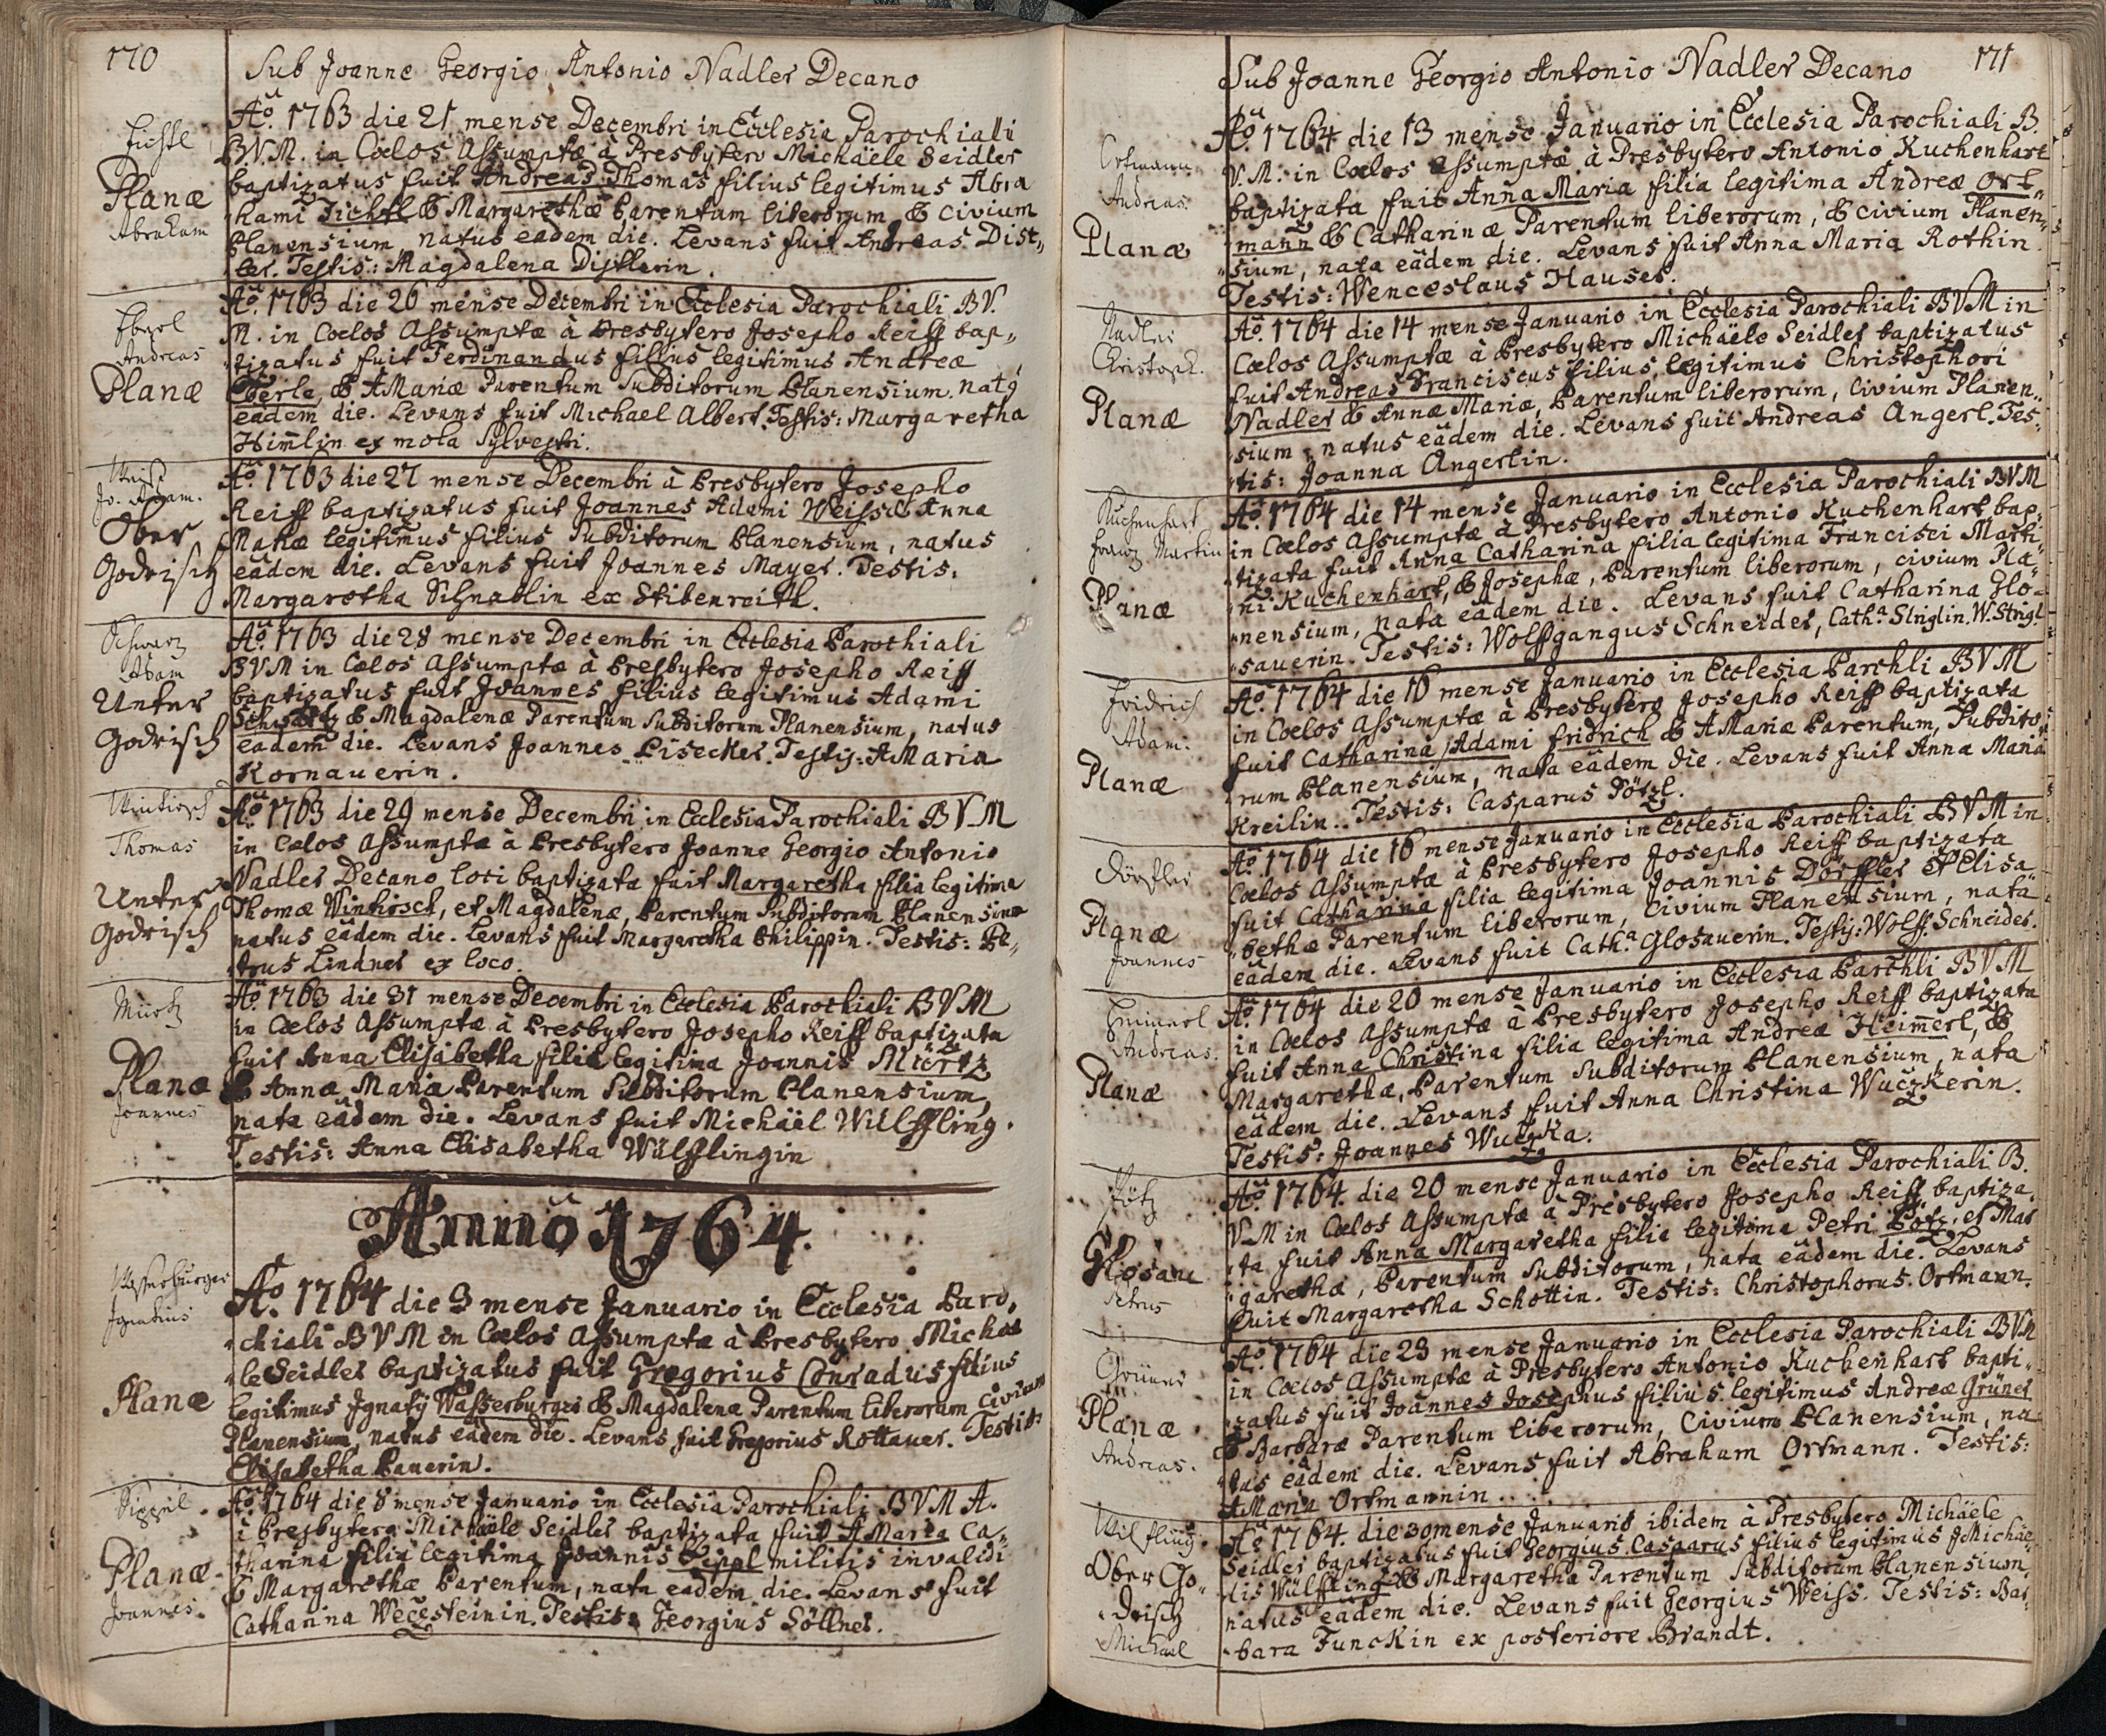 170
Sub Joanne Georgio Antonio Nadler Decano
Fichtl
Planæ
Abraham
Aõ. 1763 die 21 mense Decembri in Ecclesia Parochiali
B.V.M. in Cœlos Assumptæ à Presbytero Michäele Seidler
baptizatus fuit Andreas Thomas filius legitimus Abra
hami Fichtl & Margarethæ Parentum liberorum & civium
Planensium, natus eadem die. Levans fuit Andreas Dist„
ler. Testis: Magdalena Distlerin.
Eberl
Andreas
Planæ
Aõ. 1763 die 26 mense Decembri in Ecclesia Parochiali BV.
M. in Cœlos Assumptæ à Presbytero Josepho Reiff bap„
tizatus fuit Ferdinandus filius legitimus Andreæ
Eberle, & AMariæ Parentum Subditorum Planensium. natg
eadem die. Levans fuit Michael Albert. Testis: Margaretha
Him̄lin ex mola Sylvestri.
Weiss
Jo. Adam.
Ober
Godrisch
Aõ. 1763 die 27 mense Decembri à Presbytero Josepho
Reiff baptizatus fuit Joannes Adami Weiss & Anna
Mariæ legitimus filius Subditorum Planensium, natus
eâdem die. Levans fuit Joannes Mayer. Testis.
Margaretha Schnablin ex Stibenreith.
Schwarz
Adam
Unter
Godrisch
Aõ. 1763 die 28 mense Decembri in Ecclesia Parochiali
BVM in Cœlos Assumptæ à Presbytero Josepho Reiff
baptizatus fuit Joannes filius legitimus Adami
Schwartz & Magdalenæ Parentum Subditorum Planensium, natus
eadem die. Levans Joannes Lisecker. Testis: AMaria
Kornauerin.
Winkirsch
Thomas
Unter
Godrisch
Aõ. 1763 die 29 mense Decembri in Ecclesia Parochiali BVM
in Cœlos Assumptæ à Presbytero Joanne Georgio Antonio
Nadler Decano loci baptizata fuit Margaretha filia legitima
Thomæ Winkirsch, et Magdalenæ, Parentum Subditorum Planensium
natus eâdem die. Levans fuit Margaretha Philippin. Testis: Pe„
trus Lindner ex loco.
Miertz
Planæ
Joannes
Aõ. 1763 die 31 mense Decembri in Ecclesia Parochiali BVM
in Cœlos Assumptæ à Presbytero Josepho Reiff baptizata
fuit Anna Elisabetha filia legitima Joannis Miertz
& Annæ Mariæ Parentum Subditorum Planensium,
nata eâdem die. Levans fuit Michäel Wülffling.
Testis: Anna Elisabetha Wülfflingin
Anno 1764.
Wasserburger
Ignatius
Planæ
Aõ. 1764 die 3 mense Januario in Ecclesia Paro„
chiali BVM in Cœlos Assumptæ à Presbytero Michae
le Seidler baptizatus fuit Gregorius Conradus filius
legitimus Ignatÿ Wasserburger & Magdalenæ Parentum liberorum Civium
Planensium, natus eâdem die. Levans fuit Gregorius Rottauer. Testis:
Elisabetha Bauerin.
Sippel
Planæ
Joannes.
Aõ. 1764 die 8 mense Januario in Ecclesia Parochiali BVMA.
à Presbytero Michäele Seidler baptizata fuit AMaria Ca„
tharina filia legitima Joannis Sippl militis invalidi
& Margarethæ Parentum, nata eadem die. Levans fuit
Catharina Weczesteinin. Testis: Georgius Söllner.
171
Sub Joanne Georgio Antonio Nadler Decano
Ortmann
Andreas.
Planæ
Aõ. 1764 die 13 mense Januario in Ecclesia Parochiali B.
V.M. in Cœlos Assumptæ à Presbytero Antonio Kuchenhart
baptizata fuit Anna Maria filia legitima Andreæ Ort„
mann & Catharinæ Parentum liberorum, & civium Planen„
sium, nata eâdem die. Levans fuit Anna Maria Rothin
Testis: Wenceslaus Hauser.
Nadler
Christoph.
Planæ
Aõ. 1764 die 14 mense Januario in Ecclesia Parochiali BVM in
Cœlos Assumptæ à Presbytero Michäele Seidler baptizatus
fuit Andreas Franciscus filius legitimus Christophori
Nadler & Annæ Mariæ, Parentum liberorum, Civium Planen„
sium, natus eâdem die. Levans fuit Andreas Angerl. Tes„
tis: Joanna Angerlin.
Kuchenhart
Franz Martin
Planæ
Aõ. 1764 die 14 mense Januario in Ecclesia Parochiali BVM
in Cœlos Assumptæ à Presbytero Antonio Kuchenhart bap„
tizata fuit Anna Catharina filia legitima Francisci Marti„
ni Kuchenhart, & Josephæ, Parentum liberorum, civium Pla„
nensium, nata eâdem die. Levans fuit Catharina Glo„
sauerin. Testis: Wolffgangus Schneider, Cath.ª Striglin. W. Strigl
Fridrich
Adami.
Planæ
Aõ. 1764 die 16 mense Januario in Ecclesia Parchli BVM
in Cœlos Assumptæ à Presbytero Josepho Reiff baptizata
fuit Catharina Adami Fridrich & AMariæ Parentum, Subdito„
rum Planensium, nata eâdem die. Levans fuit Anna Maria
Kreilin. Testis: Casparus Pötzl.
Dörffler
Planæ
Joannes
Aõ. 1764 die 16 mense Januario in Ecclesia Parochiali BVM in
Cœlos Assumptæ à Presbytero Josepho Reiff baptizata
fuit Catharina filia legitima Joannis Dörffler et Elisa„
bethæ Parentum liberorum, Civium Planensium, nata
eâdem die. Levans fuit Cath.ª Glosauerin. Testis: Wolff. Schneider.
Heimerl
Andreas.
Planæ
Aõ. 1764 die 20 mense Januario in Ecclesia Parchli BVM
in Cœlos Assumptæ à Presbytero Josepho Reiff baptizata
fuit Anna Christina filia legitima Andreæ Heim̄erl, &
Margarethæ, Parentum Subditorum Planensium, nata
eâdem die. Levans fuit Anna Christina Wuczkerin.
Testis: Joannes Wuczka.
Pötz
Petrus
Aõ. 1764. die 20 mense Januario in Ecclesia Parochiali B.
V.M in Cœlos Assumptæ à Presbytero Josepho Reiff baptiza„
ta fuit Anna Margaretha filia legitima Petri Pötz, et Mar
garethæ, Parentum Subditorum, nata eâdem die. Levans
fuit Margaretha Schottin. Testis: Christophorus Ortmann.
Grüner
Planæ
Andreas.
Aõ. 1764 die 23 mense Januario in Ecclesia Parochiali BVM
in Cœlos Assumptæ à Presbytero Antonio Kuchenhart bapti„
zatus fuit Joannes Josephus filius legitimus Andreæ Grüner
& Barbaræ Parentum liberorum, Civium Planensium, na
tus eâdem die. Levans fuit Abraham Ortmann. Testis:
AMaria Ortmannin.
Wilfling
Ober Go„
drisch
Michael
Aõ 1764. die 30 mense Januario ibidem à Presbytero Michäele
Seidler baptizatus fuit Georgius Casparus filius legitimus Michäe
lis Wülffling & Margaretha Parentum Subditorum Planensium,
natus eâdem die. Levans fuit Georgius Weiss. Testis: Bar„
bara Funckin ex posteriore Brandt.